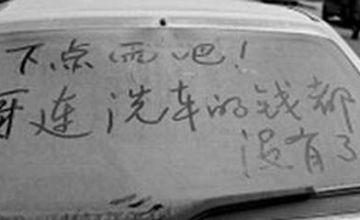 下点雨吧！
哥连洗车的钱都
没有了